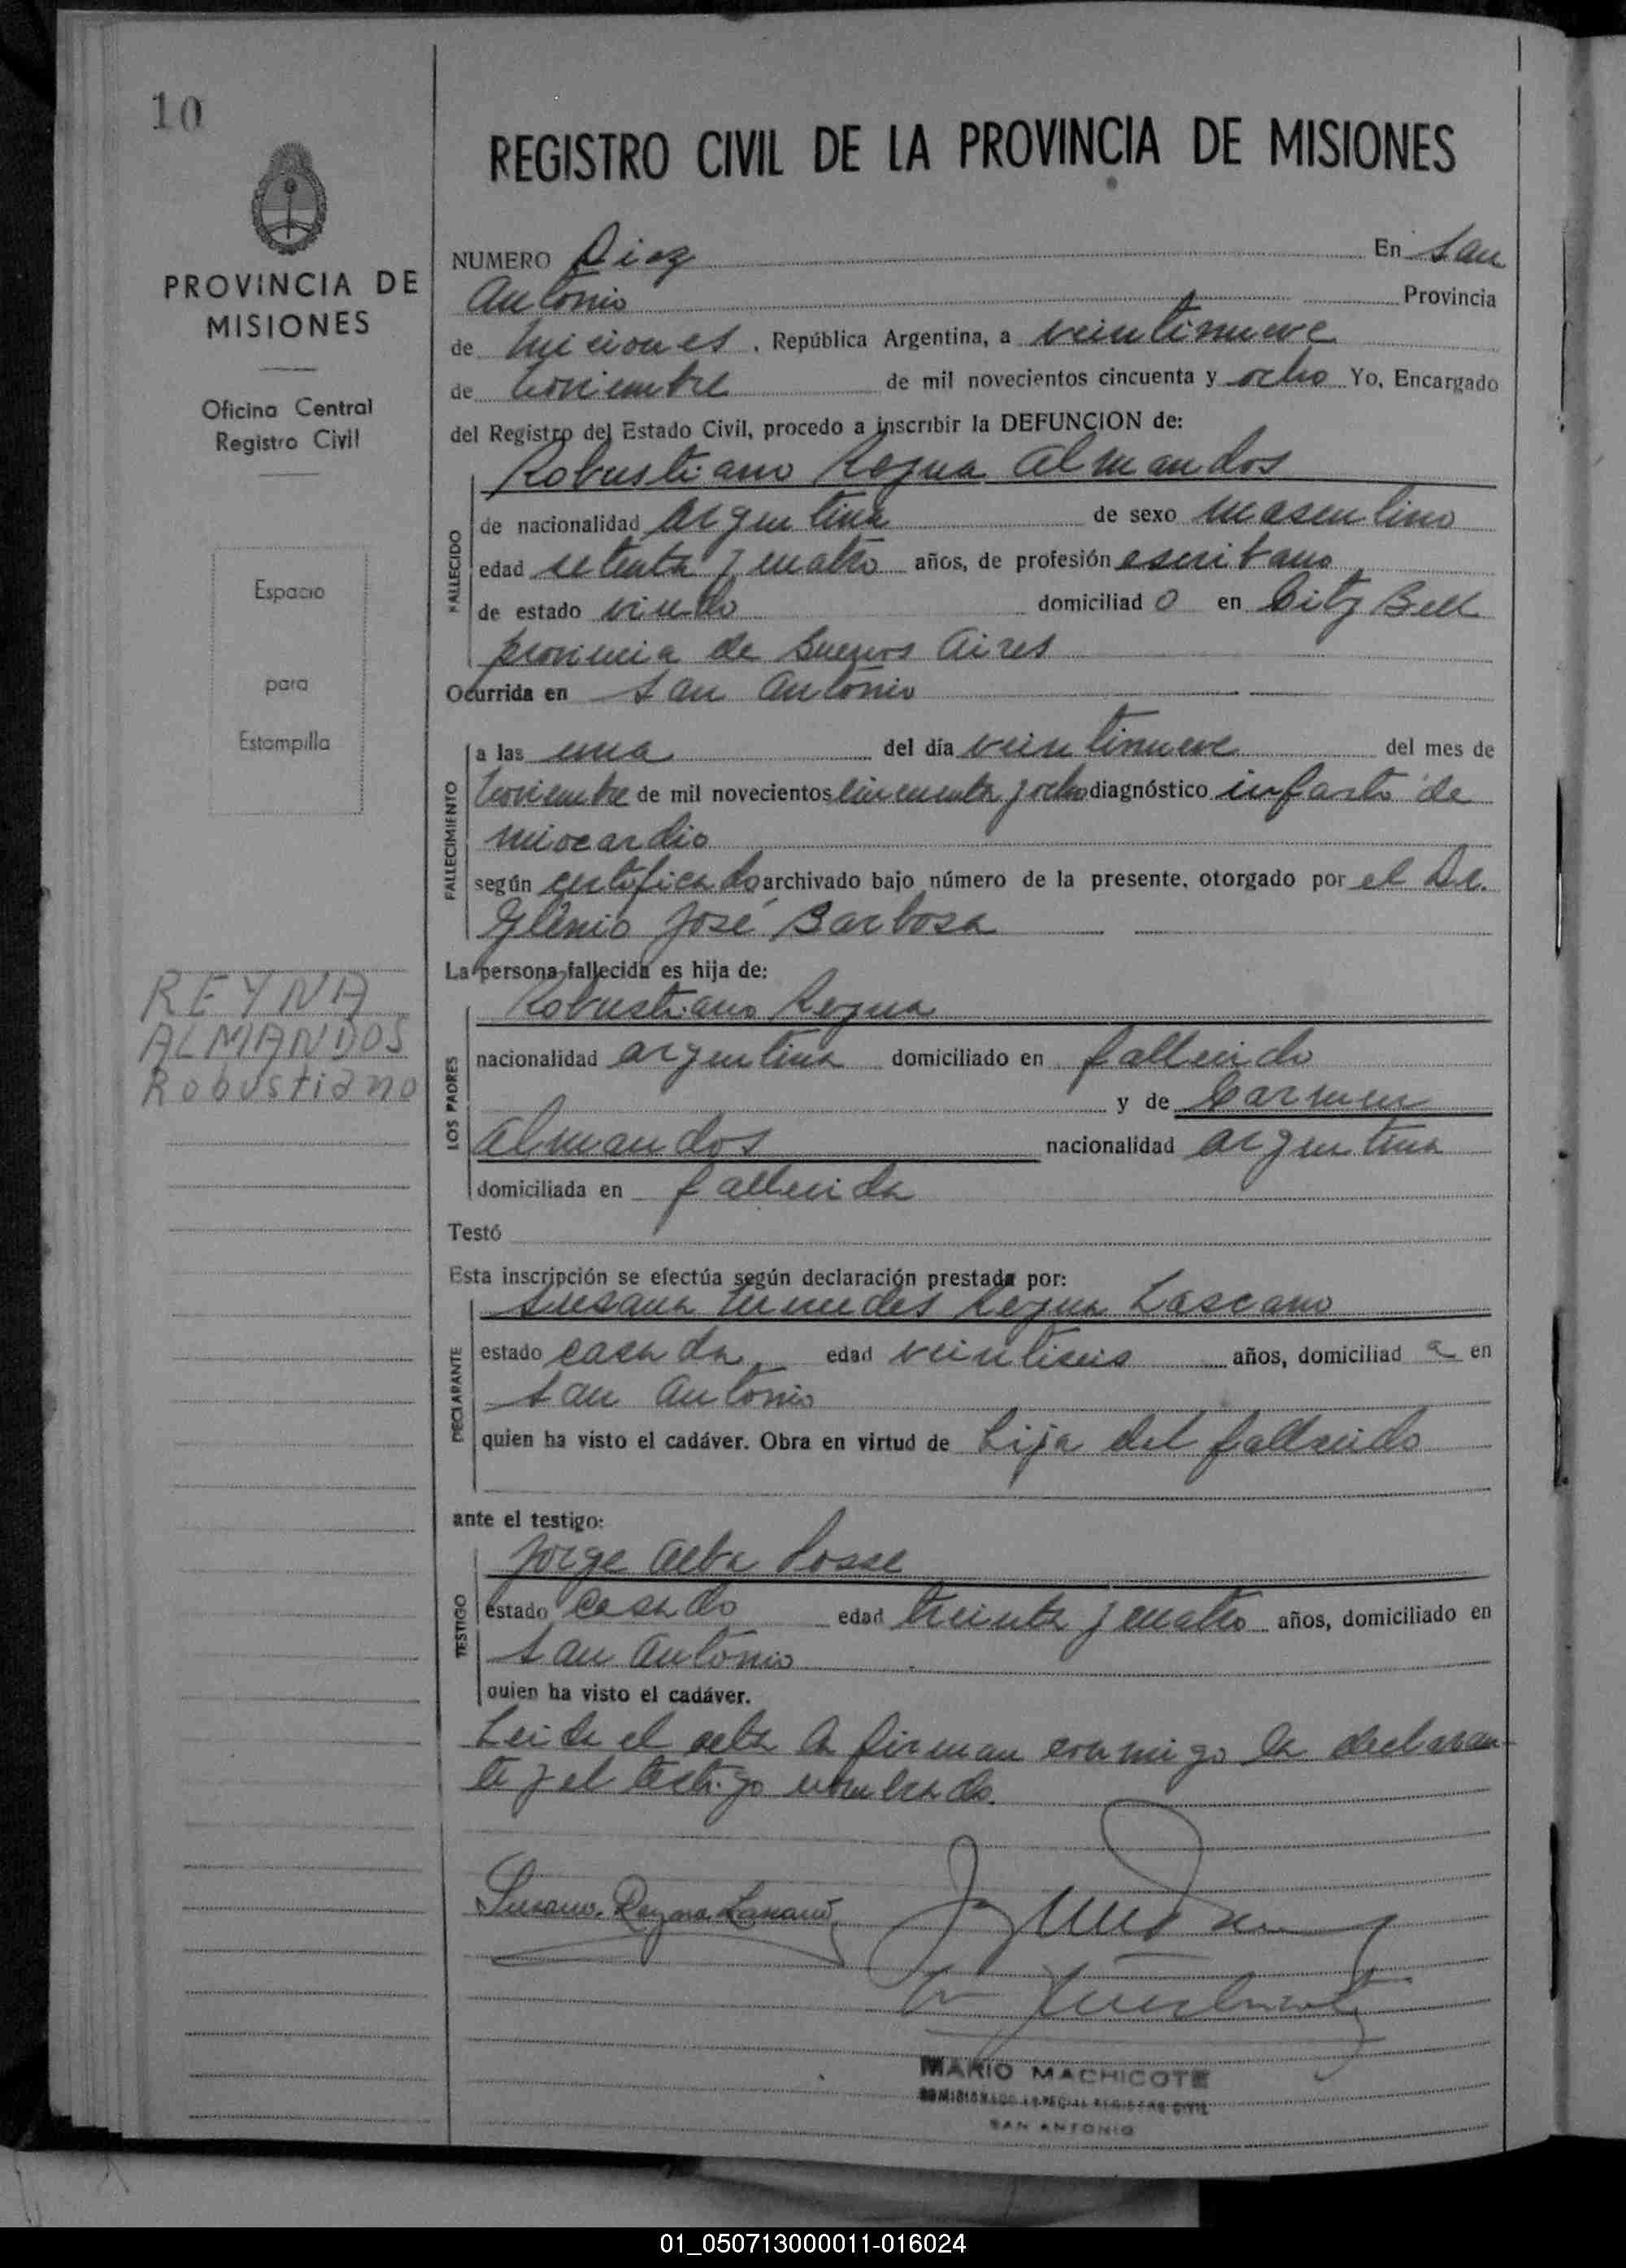 10
PROVINCIA DE
MISIONES
Oficina Central
Registro Civil
Espacio
para
Estampilla
REYNA
ALMANDOS
Robustiano
REGISTRO CIVIL DE LA PROVINCIA DE MISIONES
NUMERO Diez En San
Antonio Provincia
de Misiones, República Argentina, a veintinueve
de Noviembre de mil novecientos cincuenta y ocho Yo, Encargado
del Registro del Estado Civil, procedo a inscribir la DEFUNCION de:
Robustiano Reyna Almandos
FALLECIDO
de nacionalidad argentina de sexo masculino
edad setenta y cuatro años, de profesión escribano
de estado viudo domiciliad o en City Bell
provincia de Buenos Aires
Ocurrida en San Antonio
FALLECIMIENTO
a las una del día veintinueve del mes de
Noviembre de mil novecientos cincuenta y ocho diagnóstico infarto de
miocardio
según certificado archivado bajo número de la presente, otorgado por el Dr.
Glênio José Barbosa
La persona fallecida es hija de:
Robustiano Reyna
LOS PADRES
nacionalidad argentina domiciliado en fallecido
y de Carmen
Almandos nacionalidad argentina
domiciliada en fallecida
Testó
Esta inscripción se efectúa según declaración prestada por:
Susana Reyna Lascano
DECLARANTE
estado casada edad veintiseis años, domiciliad a en
San Antonio
quien ha visto el cadáver. Obra en virtud de hija del fallecido
ante el testigo:
Jorge Alba Posse
TESTIGO
estado casado edad treinta y cuatro años, domiciliado en
San Antonio
quien ha visto el cadáver.
Leida el acta la firman conmigo la declaran-
te y el testigo nombrado.
Susana Reyna Lascano
MARIO MACHICOTE
COMISIONADO ESPECIAL REGISTRO CIVIL
SAN ANTONIO
01_050713000011-016024